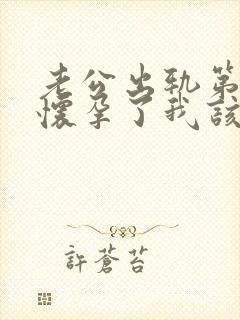 老公出轨第
怀孕了我该
許蒼苔